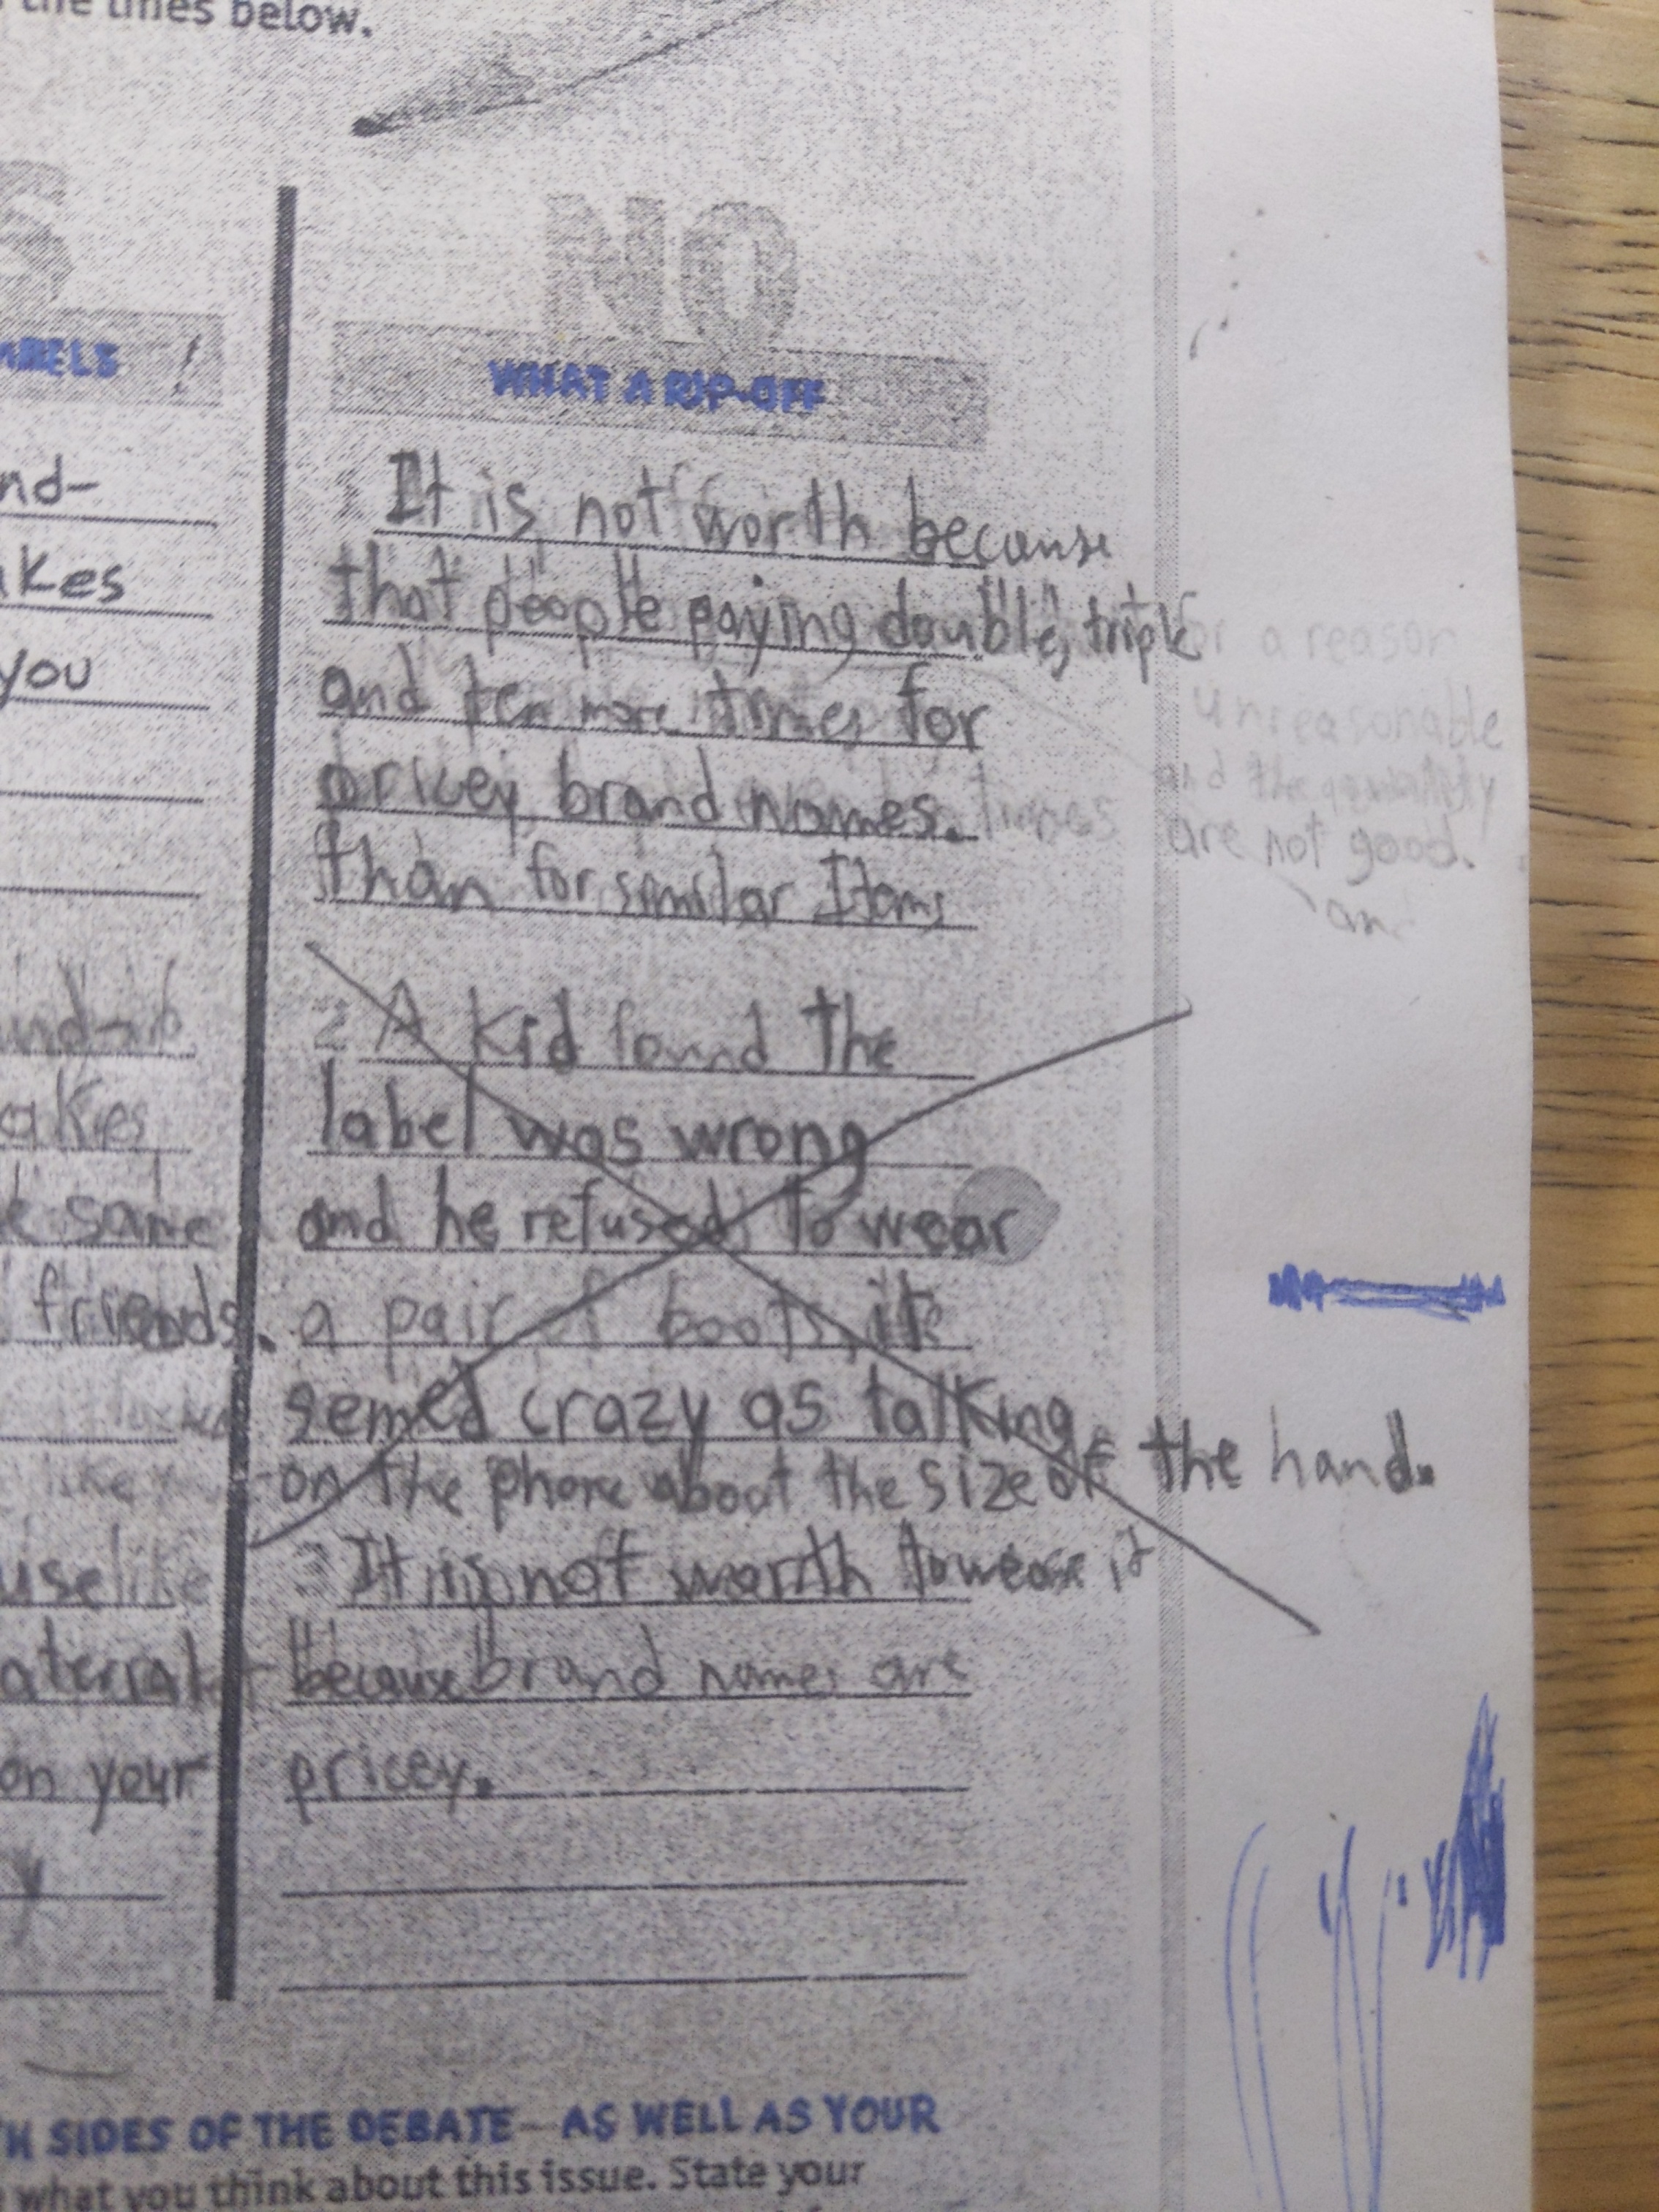 the lines below.
NO
WHAT A RIP-OFF
ABELS !
nd-
akes
you
1 It is not worth because
that people paying double, triple
and ten more times for
pricey brand names.
than for similar Items
or a reason
unreasonable
and the
are not good.
an
akes
same
friends.
like
use like
on your
y
2 A kid found the
label was wrong
and he refused to wear
a pair of boots, it
semed crazy as talking
on the phone about the size of the hand.
3 It is not worth to wear it
because brand names are
pricey.
H SIDES OF THE DEBATE—AS WELL AS YOUR
what you think about this issue. State your